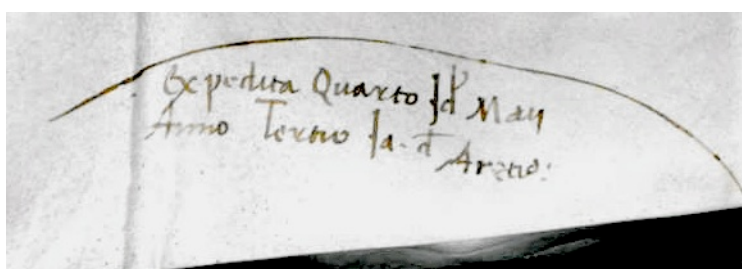 Expedita Quarto Id Maii
Anno Tertio Ja. de
Aretio: